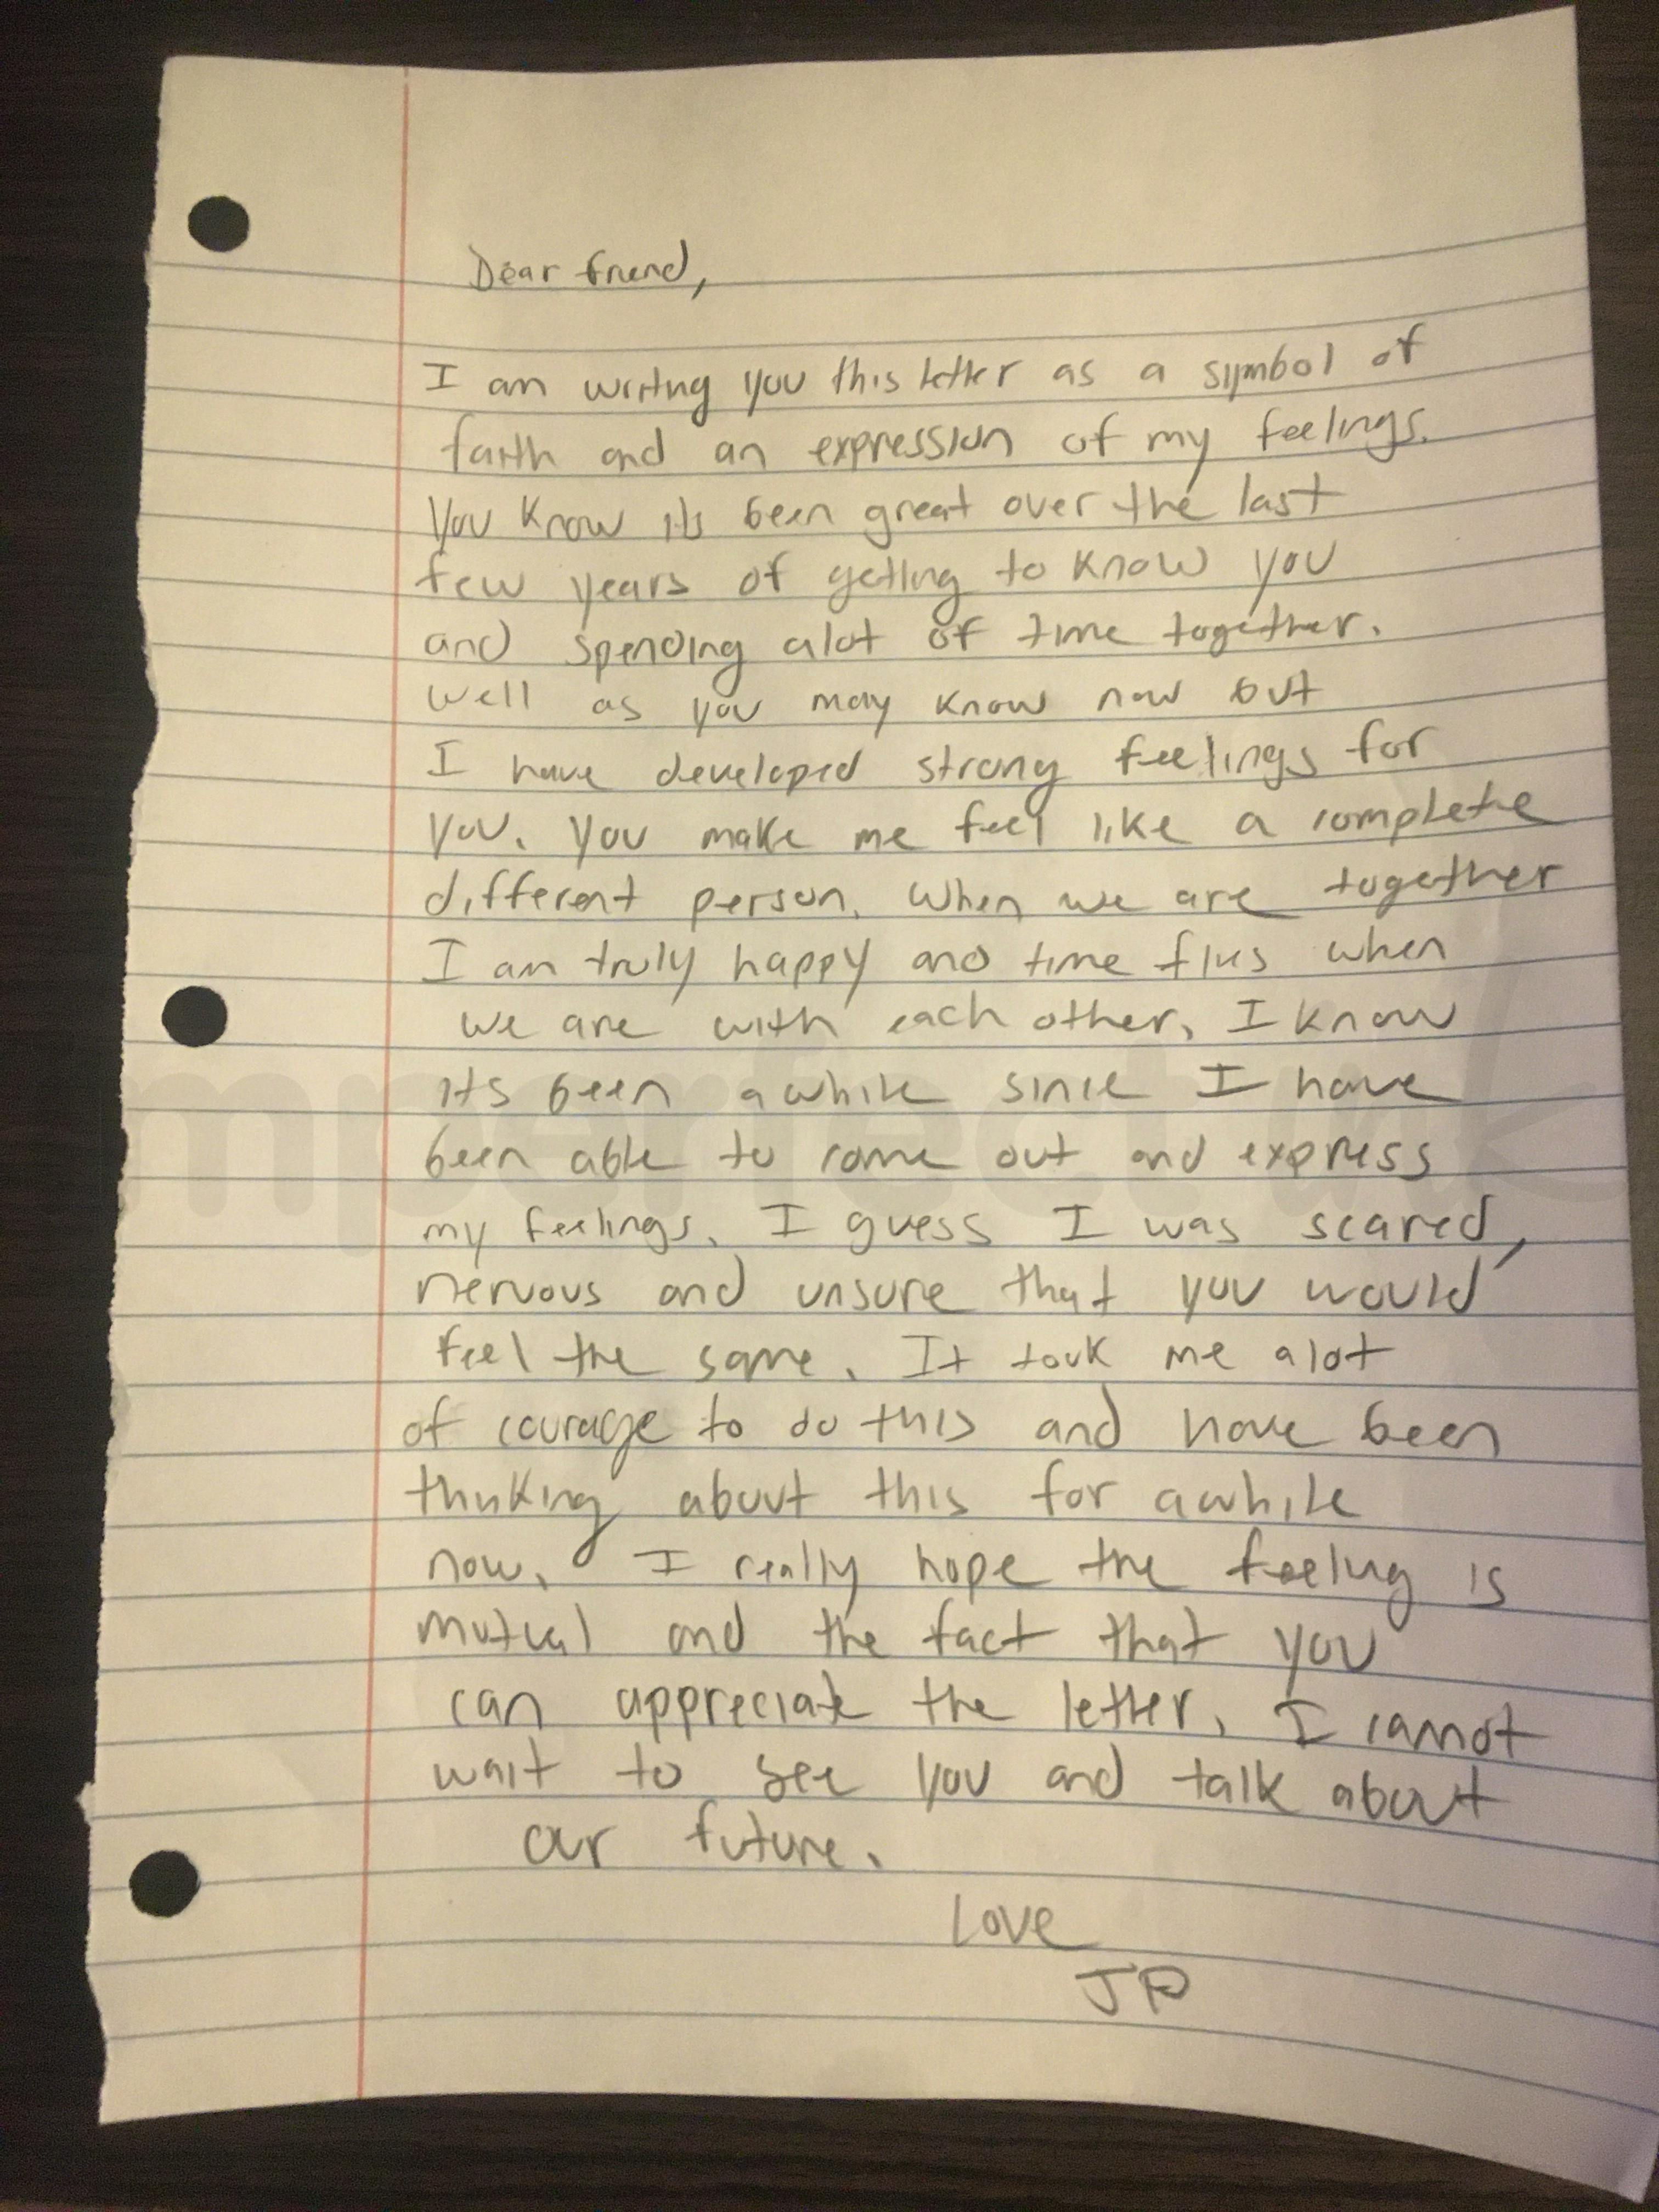 Dear friend,
I am writing you this letter as a symbol of
faith and an expression of my feelings.
You know its been great over the last
few years of getting to know you
and spending alot of time together.
Well as you may know now but
I have developed strong feelings for
you. You make me feel like a complete
different person. When we are together
I am truly happy and time flies when
we are with each other. I know
its been awhile since I have
been able to come out and express
my feelings. I guess I was scared,
nervous and unsure that you would
feel the same. It took me alot
of courage to do this and have been
thinking about this for awhile
now. I really hope the feeling is
mutual and the fact that you
can appreciate the letter. I cannot
wait to see you and talk about
our future.
Love
JP